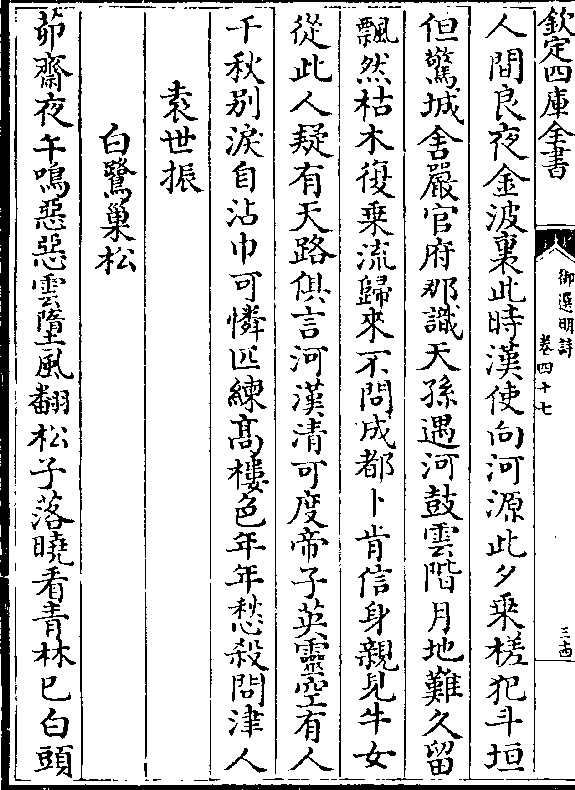 欽定四庫全書
御選明詩
卷四十七
三十四
人間良夜金波裏此時漢使向河源此夕乘槎犯斗垣
但驚城舍嚴官府那識天孫遇河鼓雲階月地難久留
飄然枯木復乗流歸來不問成都卜肯信身親見牛女
從此人疑有天路俱言河漢清可度帝子英靈空有人
千秋别淚自沾巾可憐匹練髙樓色年年愁殺問津人
袁世振
白鷺巢松
茆齋夜午鳴惡惡雲墮風翻松子落曉看青林已白頭